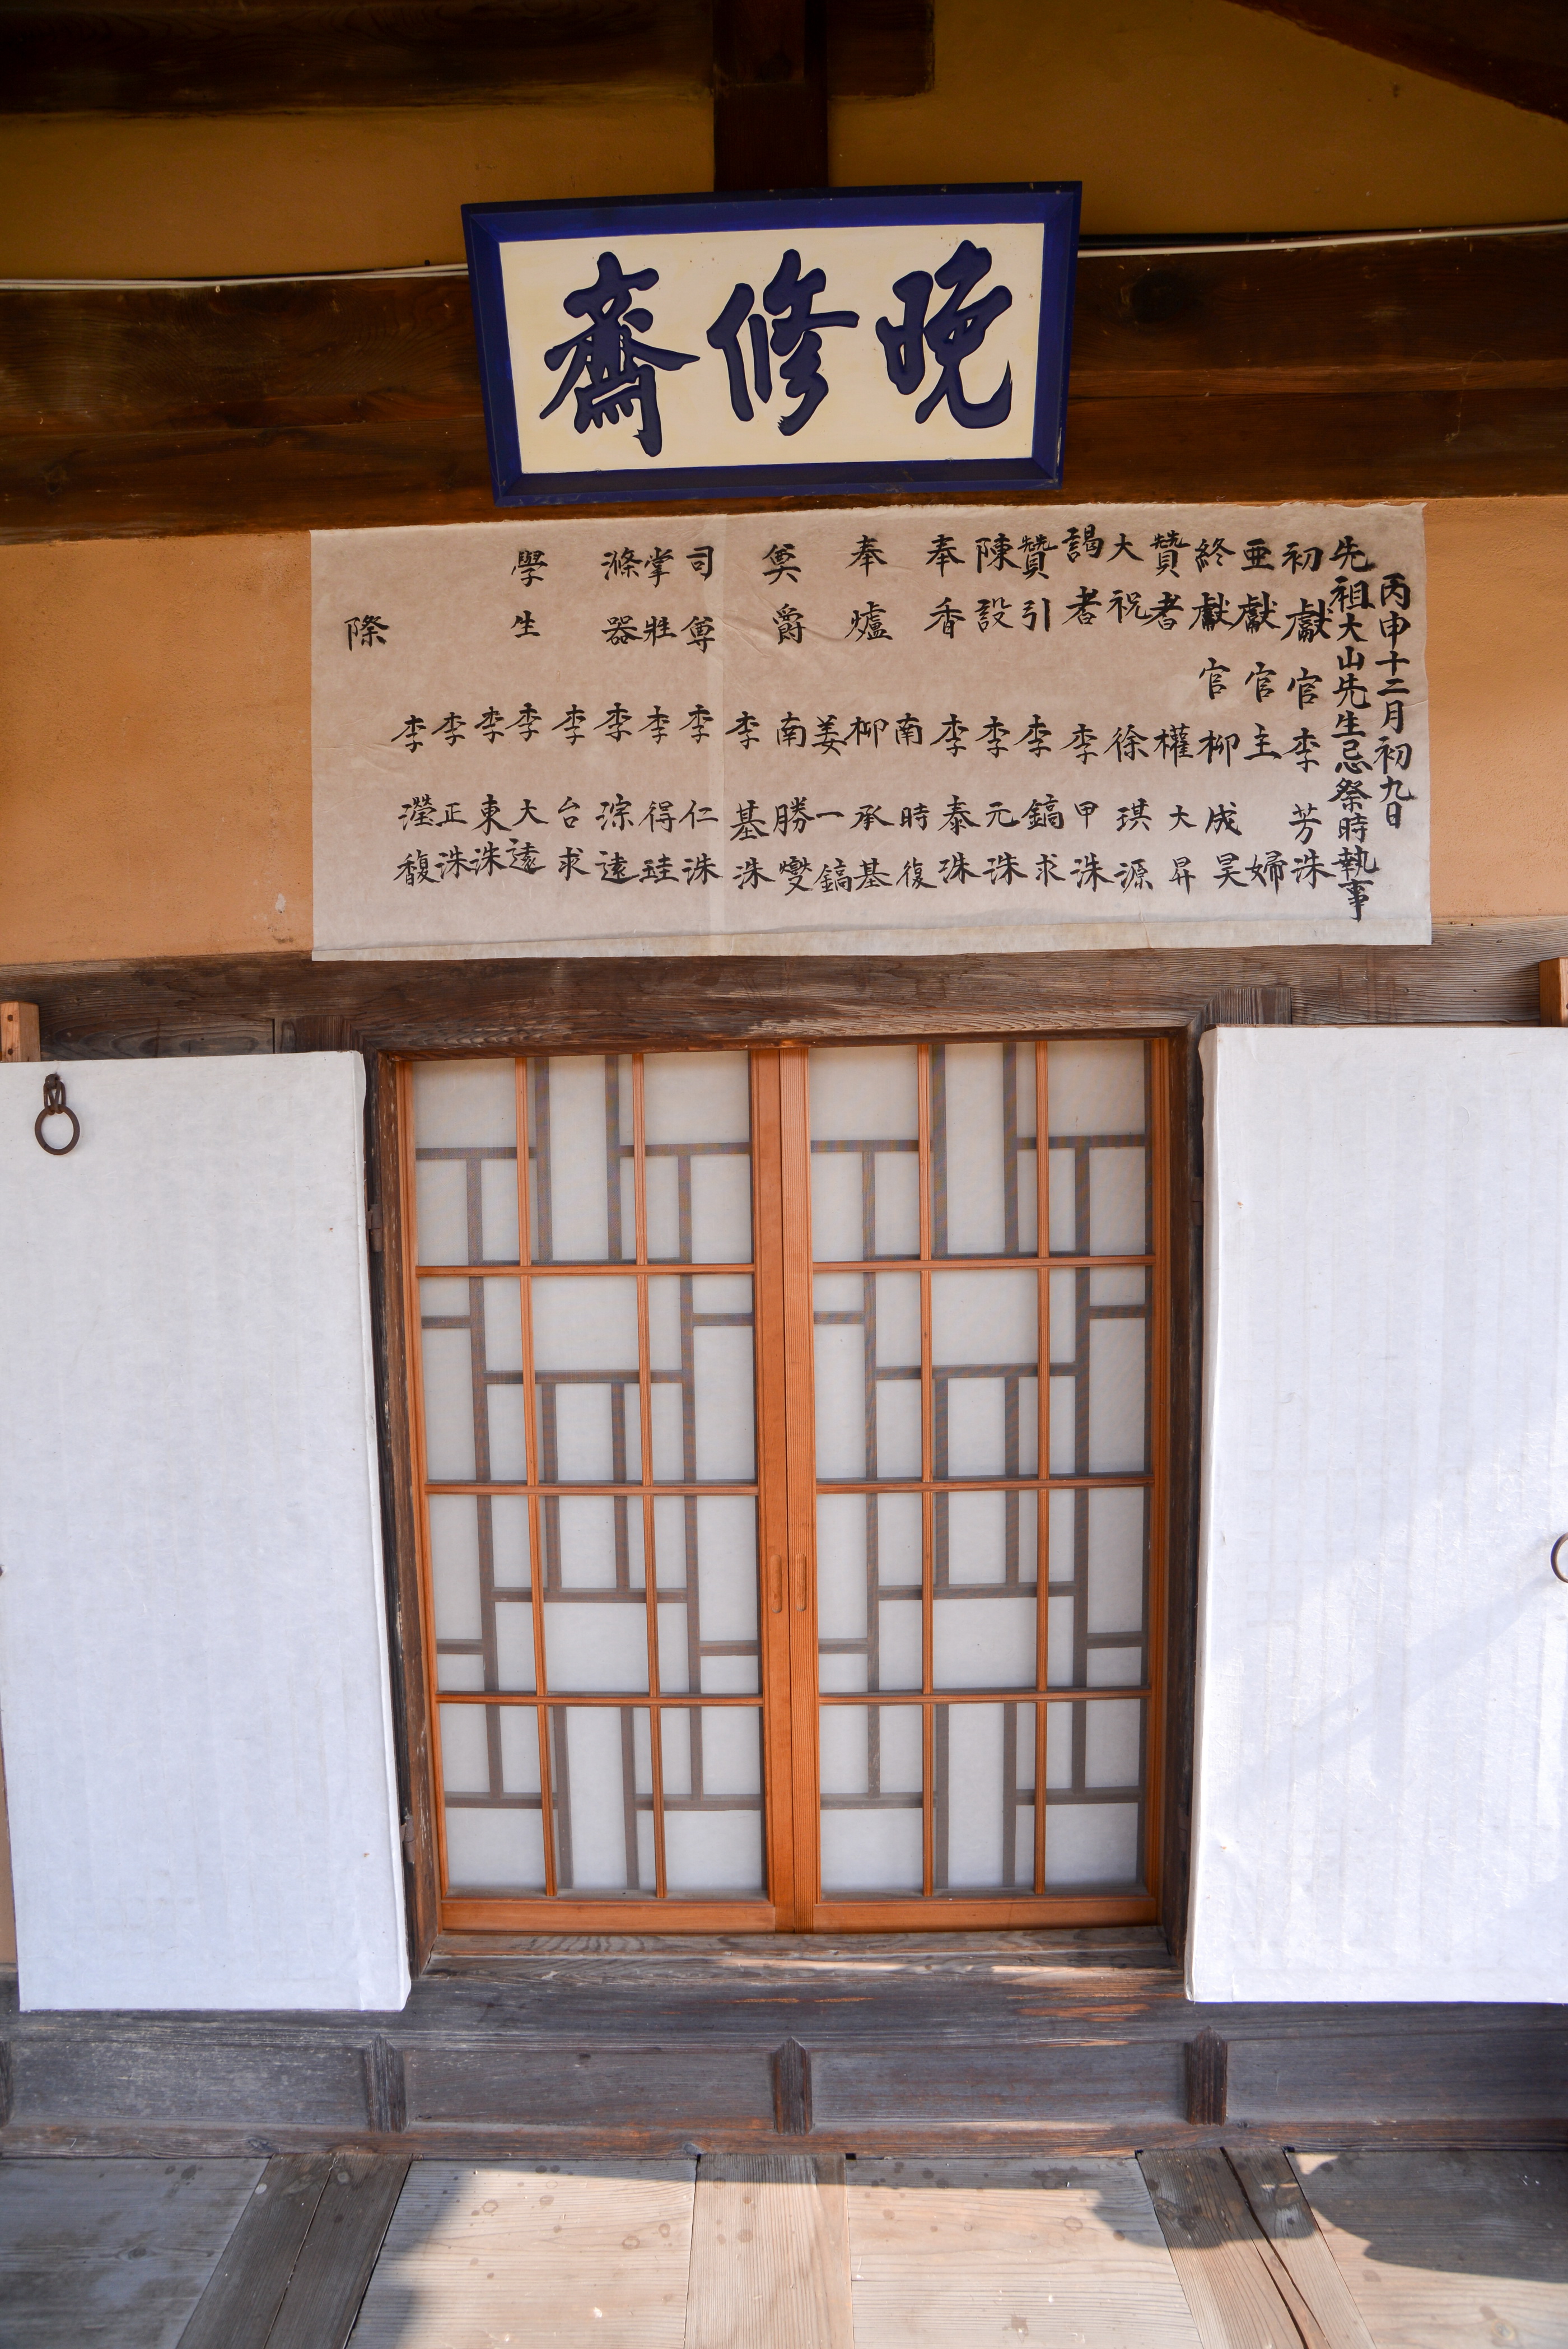 晚修齋
丙申十二月初九日
先祖大山先生忌祭時執事
初獻官 李芳洙
亞獻官 主婦
終獻官 柳成昊
贊者 權大昇
大祝 徐琪源
謁者 李甲洙
贊引 李鎬求
陳設 李元洙
奉香 李泰洙
南時復
奉爐 柳承基
姜一鎬
奠爵 南勝燮
李基洙
司 李仁洙
掌牲 李得珪
滌器 李淙遠
李台求
學生 李大遠
李東洙
李正洙
李瀅馥
際